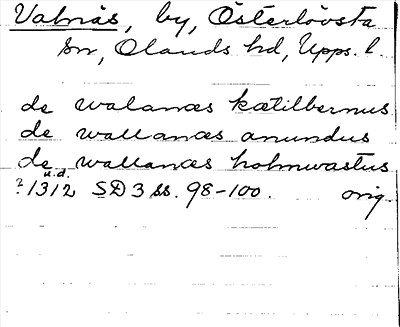 Valnäs, by, Österlövsta
sn, Olands hd, Upps. l.
de walanæs kætilbernus
de wallanæs anundus
de wallanæs holmwastus
u.d.
?1312 SD 3 ss. 98-100. orig.